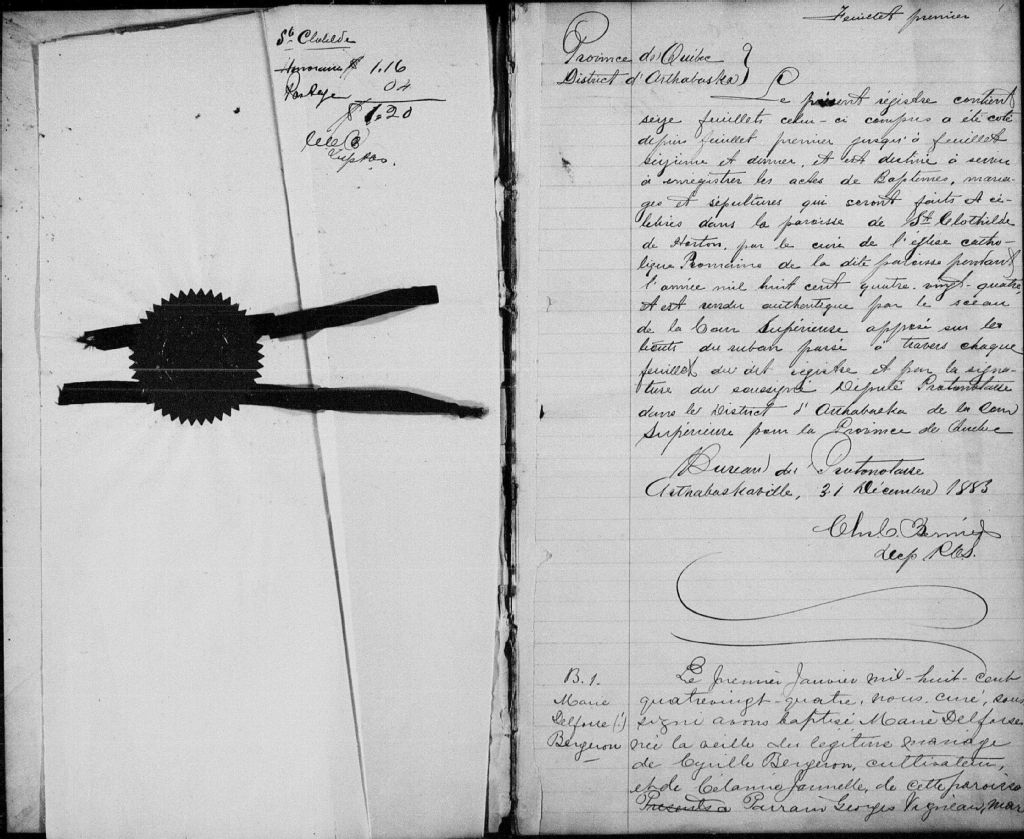 Ste Clotilde
Honoraires $ 1.16
Postage 04
$ 1.20
Feuillet premier
Province de Québec
District d'Arthabaska
Le présent régistre contient
seize feuillets celui-ci compris a été coté
depuis feuillet premier jusqu'à feuillet
seizième et dernier, et est destiné à servir
à enregistrer les actes de Baptêmes, maria-
ges et sépultures qui seront faits et cé-
lébrés dans la paroisse de Ste Clothilde
de Horton, par le curé de l'église catho-
lique Romaine de la dite paroisse pendant
l'année mil huit cent quatre-vingt-quatre,
et est rendu authentique par le sceau
de la Cour Supérieure apposé sur les
bouts du ruban passé à travers chaque
feuillet du dit régistre et par la signa-
ture du soussigné Député Protonotaire
dans le District d'Arthabaska de la Cour
Supérieure pour la Province de Québec
Bureau du Protonotaire
Arthabaskaville, 31 Décembre 1883
Dep P.C.S.
B. 1.
Marie
Delforse (!)
Bergeron
Le premier Janvier mil-huit-cent
quatrevingt-quatre, nous, curé, sous
signé avons baptisé Marie Delforse
née la veille du légitime mariage
de Cyrille Bergeron, cultivateur,
et de Célanie Jannelle, de cette paroisse
Présents a Parrain Georges Vigneau, mar